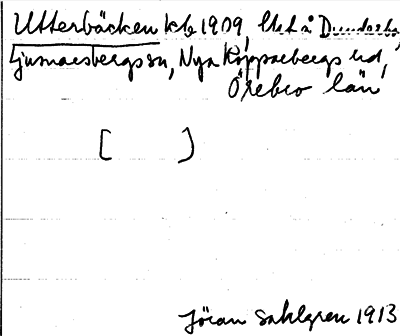 Utterbäcken kb 1909, litet å Dunderbo
Ljusnarsbergs sn, Nya Kopparbergs hd,
Örebro län
[ ]
Jöran Sahlgren 1913